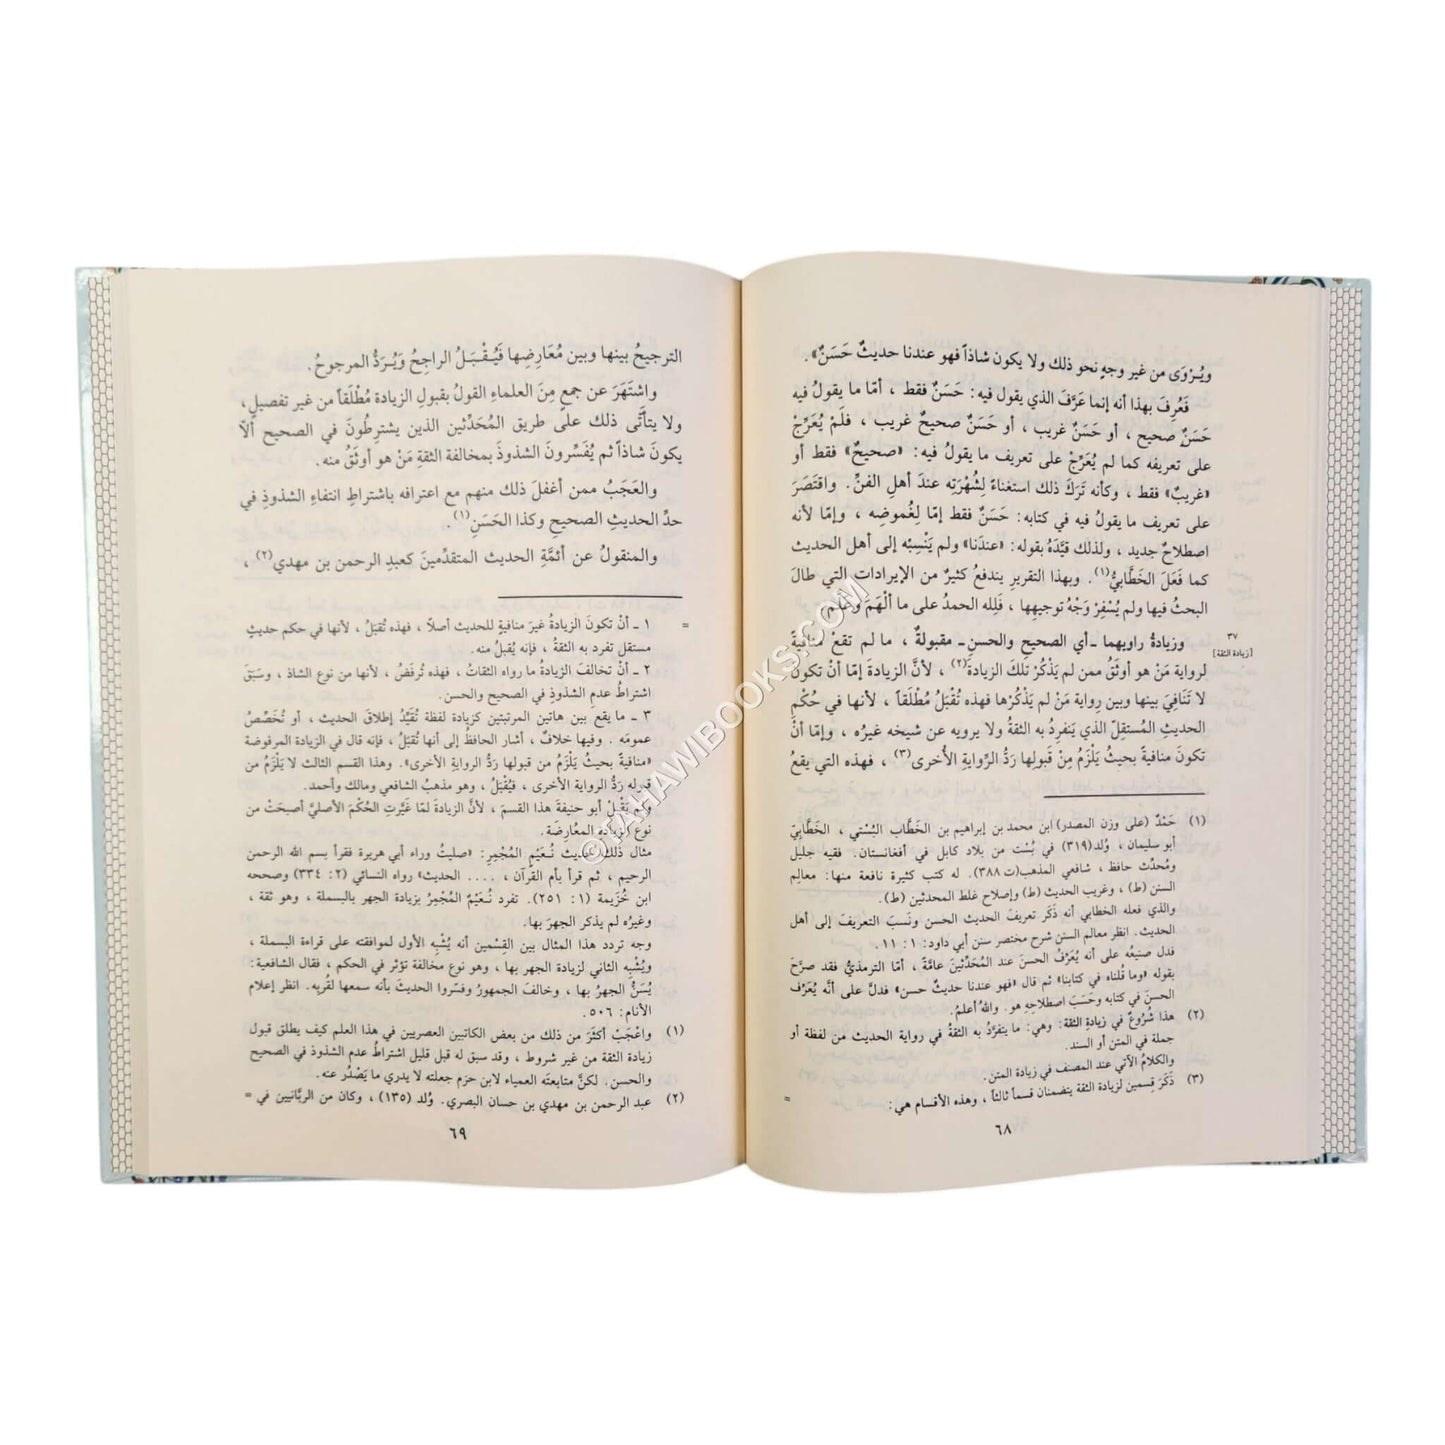 ويُرْوَى من غير وجهٍ نحو ذلك ولا يكون شاذاً فهو عندنا حديثٌ حَسَنٌ» .
فَعُرِفَ بهذا أنه إنما عَرَّفَ الذي يقول فيه: حَسَنٌ فقط ، أمّا ما يقولُ فيه
حَسَنٌ صحيح ، أو حَسَنٌ غريب ، أو حَسَنٌ صحيحٌ غريب ، فلَمْ يُعَرِّجْ
على تعريفه كما لم يُعَرِّجْ على تعريف ما يقولُ فيه: «صحيحٌ» فقط أو
«غريبٌ» فقط ، وكأنه تَرَكَ ذلك استغناءً لِشُهْرَتِه عندَ أهلِ الفنِّ . واقتَصَرَ
على تعريف ما يقولُ فيه في كتابه: حَسَنٌ فقط إمّا لِغُموضِه ، وإمّا لأنه
اصطلاحٌ جديد ، ولذلك قيَّدَهُ بقوله: «عندَنا» ولم يَنْسِبْه إلى أهل الحديث
كما فَعَلَ الخَطَّابيُّ(١) . وبهذا التقريرِ يندفعُ كثيرٌ من الإيرادات التي طالَ
البحثُ فيها ولم يُسْفِرْ وَجْهُ توجيهِها ، فَلِله الحمدُ على ما ألْهَمَ وعَلَّم .
٣٧
[زيادة الثقة]
وزيادةُ راويهما ـ أي الصحيحِ والحسنِ ـ مقبولةٌ ، ما لم تقعْ منافيةً
لرواية مَنْ هو أوثَقُ ممن لم يَذْكُرْ تلكَ الزيادةَ(٢) ، لأنَّ الزيادةَ إمّا أنْ تكون
لا تَنَافِيَ بينها وبين رواية مَنْ لم يَذْكُرْها فهذه تُقْبَلُ مُطْلَقاً ، لأنها في حُكْمِ
الحديثِ المُستقِلّ الذي يَنفرِدُ به الثقةُ ولا يرويه عن شيخه غيرُه ، وإمّا أنْ
تكونَ منافيةً بحيثُ يَلْزَمُ مِنْ قَبولِها رَدُّ الرِّوايةِ الأُخرى(٣) ، فهذه التي يقعُ
(١) حَمْدٌ (على وزن المصدر) ابن محمد بن إبراهيم بن الخَطَّاب البُسْتي ، الخَطَّابيّ
أبو سليمان ، وُلد(٣١٩) في بُسْت من بلاد كابل في أفغانستان. فقيه جليل
ومُحدِّث حافظ ، شافعي المذهب(ت ٣٨٨). له كتب كثيرة نافعة منها: معالم
السنن (ط) ، وغريب الحديث (ط) وإصلاح غلط المحدثين (ط).
والذي فعله الخطابي أنه ذَكَر تعريفَ الحديث الحسن ونَسبَ التعريفَ إلى أهل
الحديث. انظر معالم السنن شرح مختصر سنن أبي داود: ١ : ١١ .
فدل صنيعُه على أنه يُعَرِّفُ الحسنَ عند المُحَدِّثينَ عامَّةً ، أمّا الترمذيُّ فقد صرَّحَ
بقوله «وما قُلناه في كتابنا» ثم قال «فهو عندنا حديثٌ حسن» فدلَّ على أنَّه يُعَرِّف
الحسنَ في كتابه وحَسَبَ اصطلاحِهِ هو. واللهُ أعلمُ.
(٢) هذا شُروعٌ في زيادةِ الثقة: وهي: ما يتفرَّدُ به الثقةُ في رواية الحديث من لفظة أو
جملة في المتن أو السند.
والكلامُ الآتي عند المصنف في زيادة المتن.
(٣) ذَكَرَ قِسمين لزيادة الثقة يتضمنان قسماً ثالثاً ، وهذه الأقسام هي: =
٦٨
الترجيحُ بينها وبين مُعَارِضِها فَيُقْبَلُ الراجِحُ وَيُرَدُّ المرجوحُ.
واشتَهَرَ عن جمعٍ مِنَ العلماءِ القولُ بقبولِ الزيادة مُطْلَقاً من غير تفصيلٍ ،
ولا يتأتَّى ذلك على طريق المُحَدِّثين الذين يشترِطُونَ في الصحيح ألاّ
يكونَ شاذاً ثم يُفَسِّرون الشذوذَ بمخالفة الثقةِ مَنْ هو أوثَقُ منه.
والعَجَبُ ممن أغفلَ ذلك منهم مع اعترافه باشتراطِ انتفاءِ الشذوذِ في
حدِّ الحديثِ الصحيحِ وكذا الحَسَنِ(١).
والمنقولُ عن أئمَّةِ الحديث المتقدِّمينَ كعبدِ الرحمن بن مهدي(٢) ،
= ١ ـ أنْ تكونَ الزيادةُ غيرَ منافيةٍ للحديث أصلاً ، فهذه تُقبَلُ ، لأنها في حكم حديثٍ
مستقل تفرد به الثقةُ ، فإنه يُقبلُ منه.
٢ ـ أنْ تخالفَ الزيادةُ ما رواه الثقاتُ ، فهذه تُرفَضُ ، لأنها من نوع الشاذ ، وسَبَقَ
اشتراطُ عدمِ الشذوذِ في الصحيح والحسن.
٣ ـ ما يقع بين هاتين المرتبتين كزيادة لفظة تُقَيِّدُ إطلاقَ الحديث ، أو تُخَصِّصُ
عمومَه . وفيها خلافٌ ، أشار الحافظُ إلى أنها تُقبَلُ ، فإنه قال في الزيادة المرفوضة
«منافيةً بحيثُ يَلْزَمُ من قبولها رَدُّ الروايةِ الأخرى». وهذا القسم الثالث لا يَلْزَمُ من
قبوله رَدُّ الرواية الأخرى ، فيُقْبَلُ ، وهو مذهبُ الشافعي ومالك وأحمد.
ولم يَقْبَلْ أبو حنيفة هذا القسمَ ، لأنَّ الزيادةَ لمّا غَيَّرتِ الحُكْمَ الأصليَّ أصبحَتْ من
نوع الزيادة المعُارِضَة.
مثال ذلك حديث نُعَيْم المُجْمِر: «صليتُ وراء أبي هريرة فقرأ بسم الله الرحمن
الرحيم ، ثم قرأ بأم القرآن ، .... الحديث» رواه النسائي (٢ : ٣٣٤) وصححه
ابن خُزَيمة (١ : ٢٥١). تفرد نُعَيْمٌ المُجْمِرُ بزيادة الجهر بالبسملة ، وهو ثقة ،
وغيرُه لم يذكر الجهرَ بها.
وجه تردد هذا المثال بين القِسْمين أنه يُشْبِه الأول لموافقته على قراءة البسملة ،
ويُشْبِه الثاني لزيادة الجهر بها ، وهو نوع مخالفة تؤثر في الحكم ، فقال الشافعية:
يُسَنُّ الجهرُ بها ، وخالفَ الجمهورُ وفسّروا الحديثَ بأنه سمعها لقُربِه. انظر إعلام
الأنام: ٥٠٦.
(١) واعْجَبْ أكثَرَ من ذلك من بعض الكاتبين العصريين في هذا العلم كيف يطلق قبول
زيادة الثقة من غير شروط ، وقد سبق له قبل قليل اشتراطُ عدم الشذوذ في الصحيح
والحسن. لكنَّ متابعتَه العمياء لابن حزم جعلته لا يدري ما يَصْدُر عنه.
(٢) عبد الرحمن بن مهدي بن حسان البصري. وُلد (١٣٥) ، وكان من الربَّانيين في =
٦٩
©TAHAWIBOOKS.COM